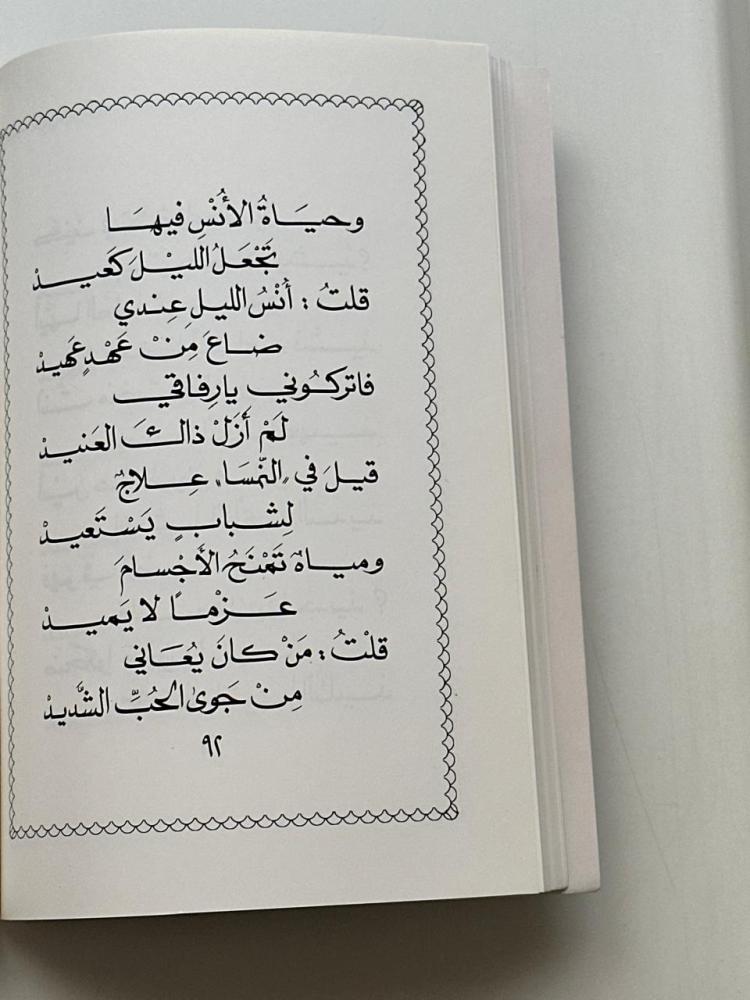 وحياةُ الأُنْسِ فيها
تَجْعَلُ الليْلَ كَعيدْ
قلتُ : أُنْسُ الليلِ عِندي
ضاعَ مِنْ عَهْدٍ عَهيدْ
فاتركُوني يا رِفاقي
لَمْ أَزَلْ ذاكَ العَنيدْ
قيلَ في «النّمسَا» عِلاجٌ
لِشبابٍ يَسْتَعيدْ
ومياهٌ تَمْنَحُ الأَجْسامَ
عَزْمًا لا يَميدْ
قلْتُ : مَنْ كانَ يُعَاني
مِنْ جَوىٰ الحُبِّ الشَّديدْ
٩٢